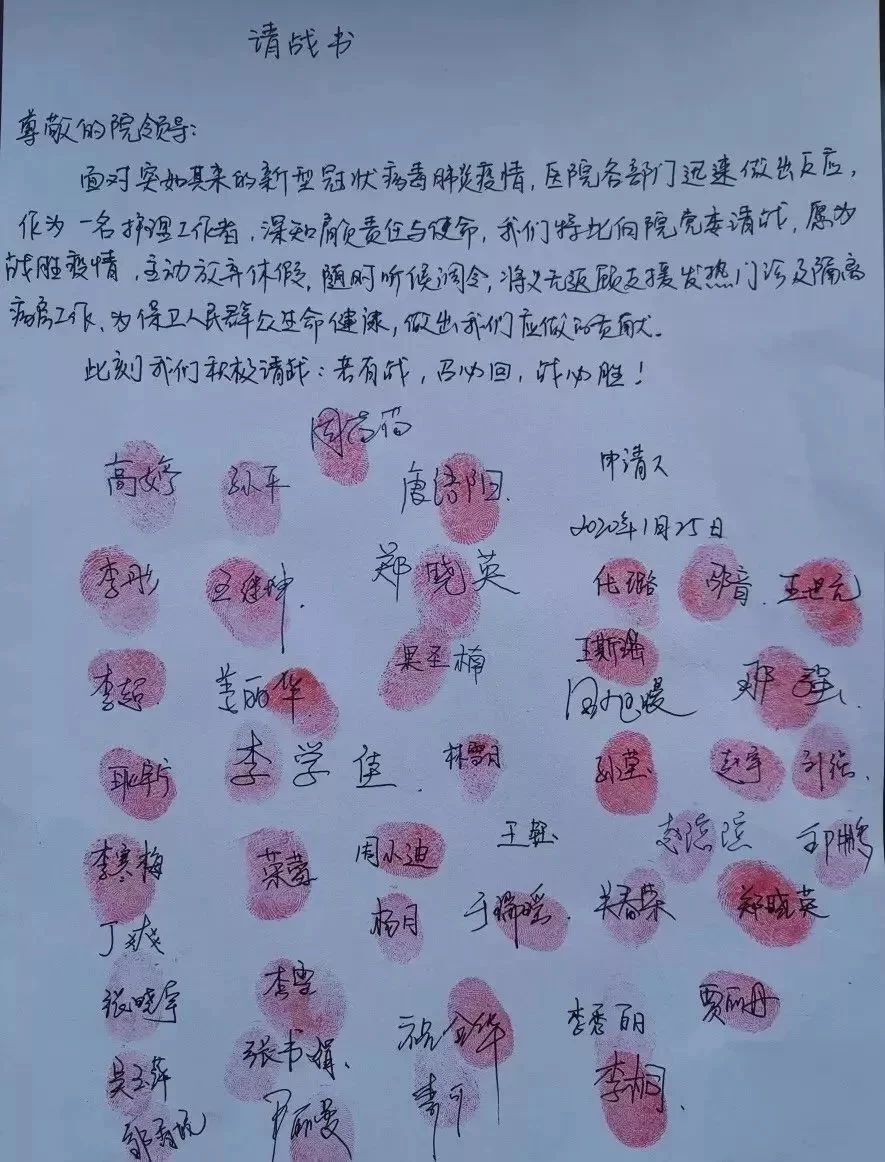 请战书
尊敬的院领导：
面对突如其来的新型冠状病毒肺炎疫情，医院各部门迅速做出反应，
作为一名护理工作者，深知肩负责任与使命，我们特此向院党委请战，愿为
战胜疫情，主动放弃休假，随时听候调令，将义无返顾支援发热门诊及隔离
病房工作、为保卫人民群众生命健康，做出我们应做的贡献。
此刻我们积极请战：若有战，召必回，战必胜！
申请人
高婷 孙平
2020年1月25日
李彤 郑晓英
王世元
李超 姜丽华 吴圣楠 王斯瑶
李学佳 林雪月 孙莹 赵宇
李寒梅 周小迪 王钰
杨月 于瑞瑶 关春荣 郑晓英
丁爽
张晓宇 李雪 李秀丽 贾丽丹
吴玉萍 张书娟 李桐
李可